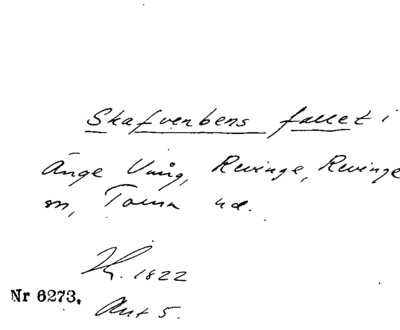 Skafvenbens fallet i
Änge Vång, Revinge, Revinge
sn, Torna hd.
Kr. 1822
Akt 5.
Nr 6273.